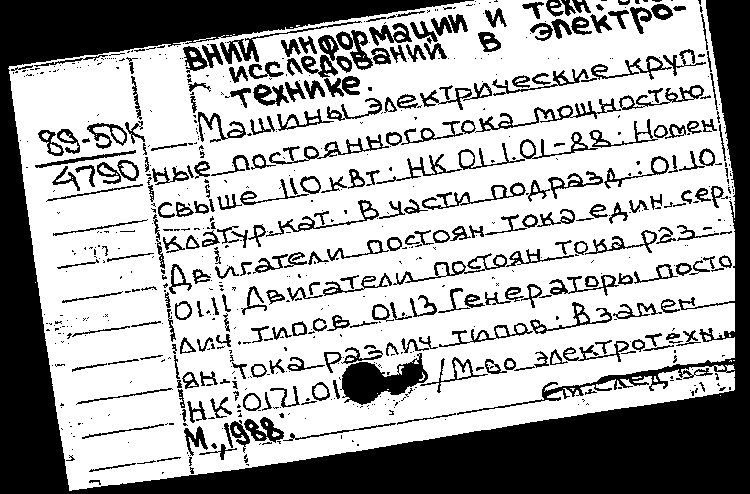 ВНИИ информации и техн.
исследований в электро-
технике.
89-50К
4790
Машины электрические круп-
ные постоянного тока мощностью
свыше 110 кВт: НК 01.1.01-88: Номен
клатур.кат.: В части подразд.: 01.10
Двигатели постоян. тока един. сер.
01.11 Двигатели постоян тока раз-
лич. типов 01.13 Генераторы посто
ян. тока различ. типов: Взамен
НК 0171.01 /М-во электротехн...
См.след.
М.,1988.